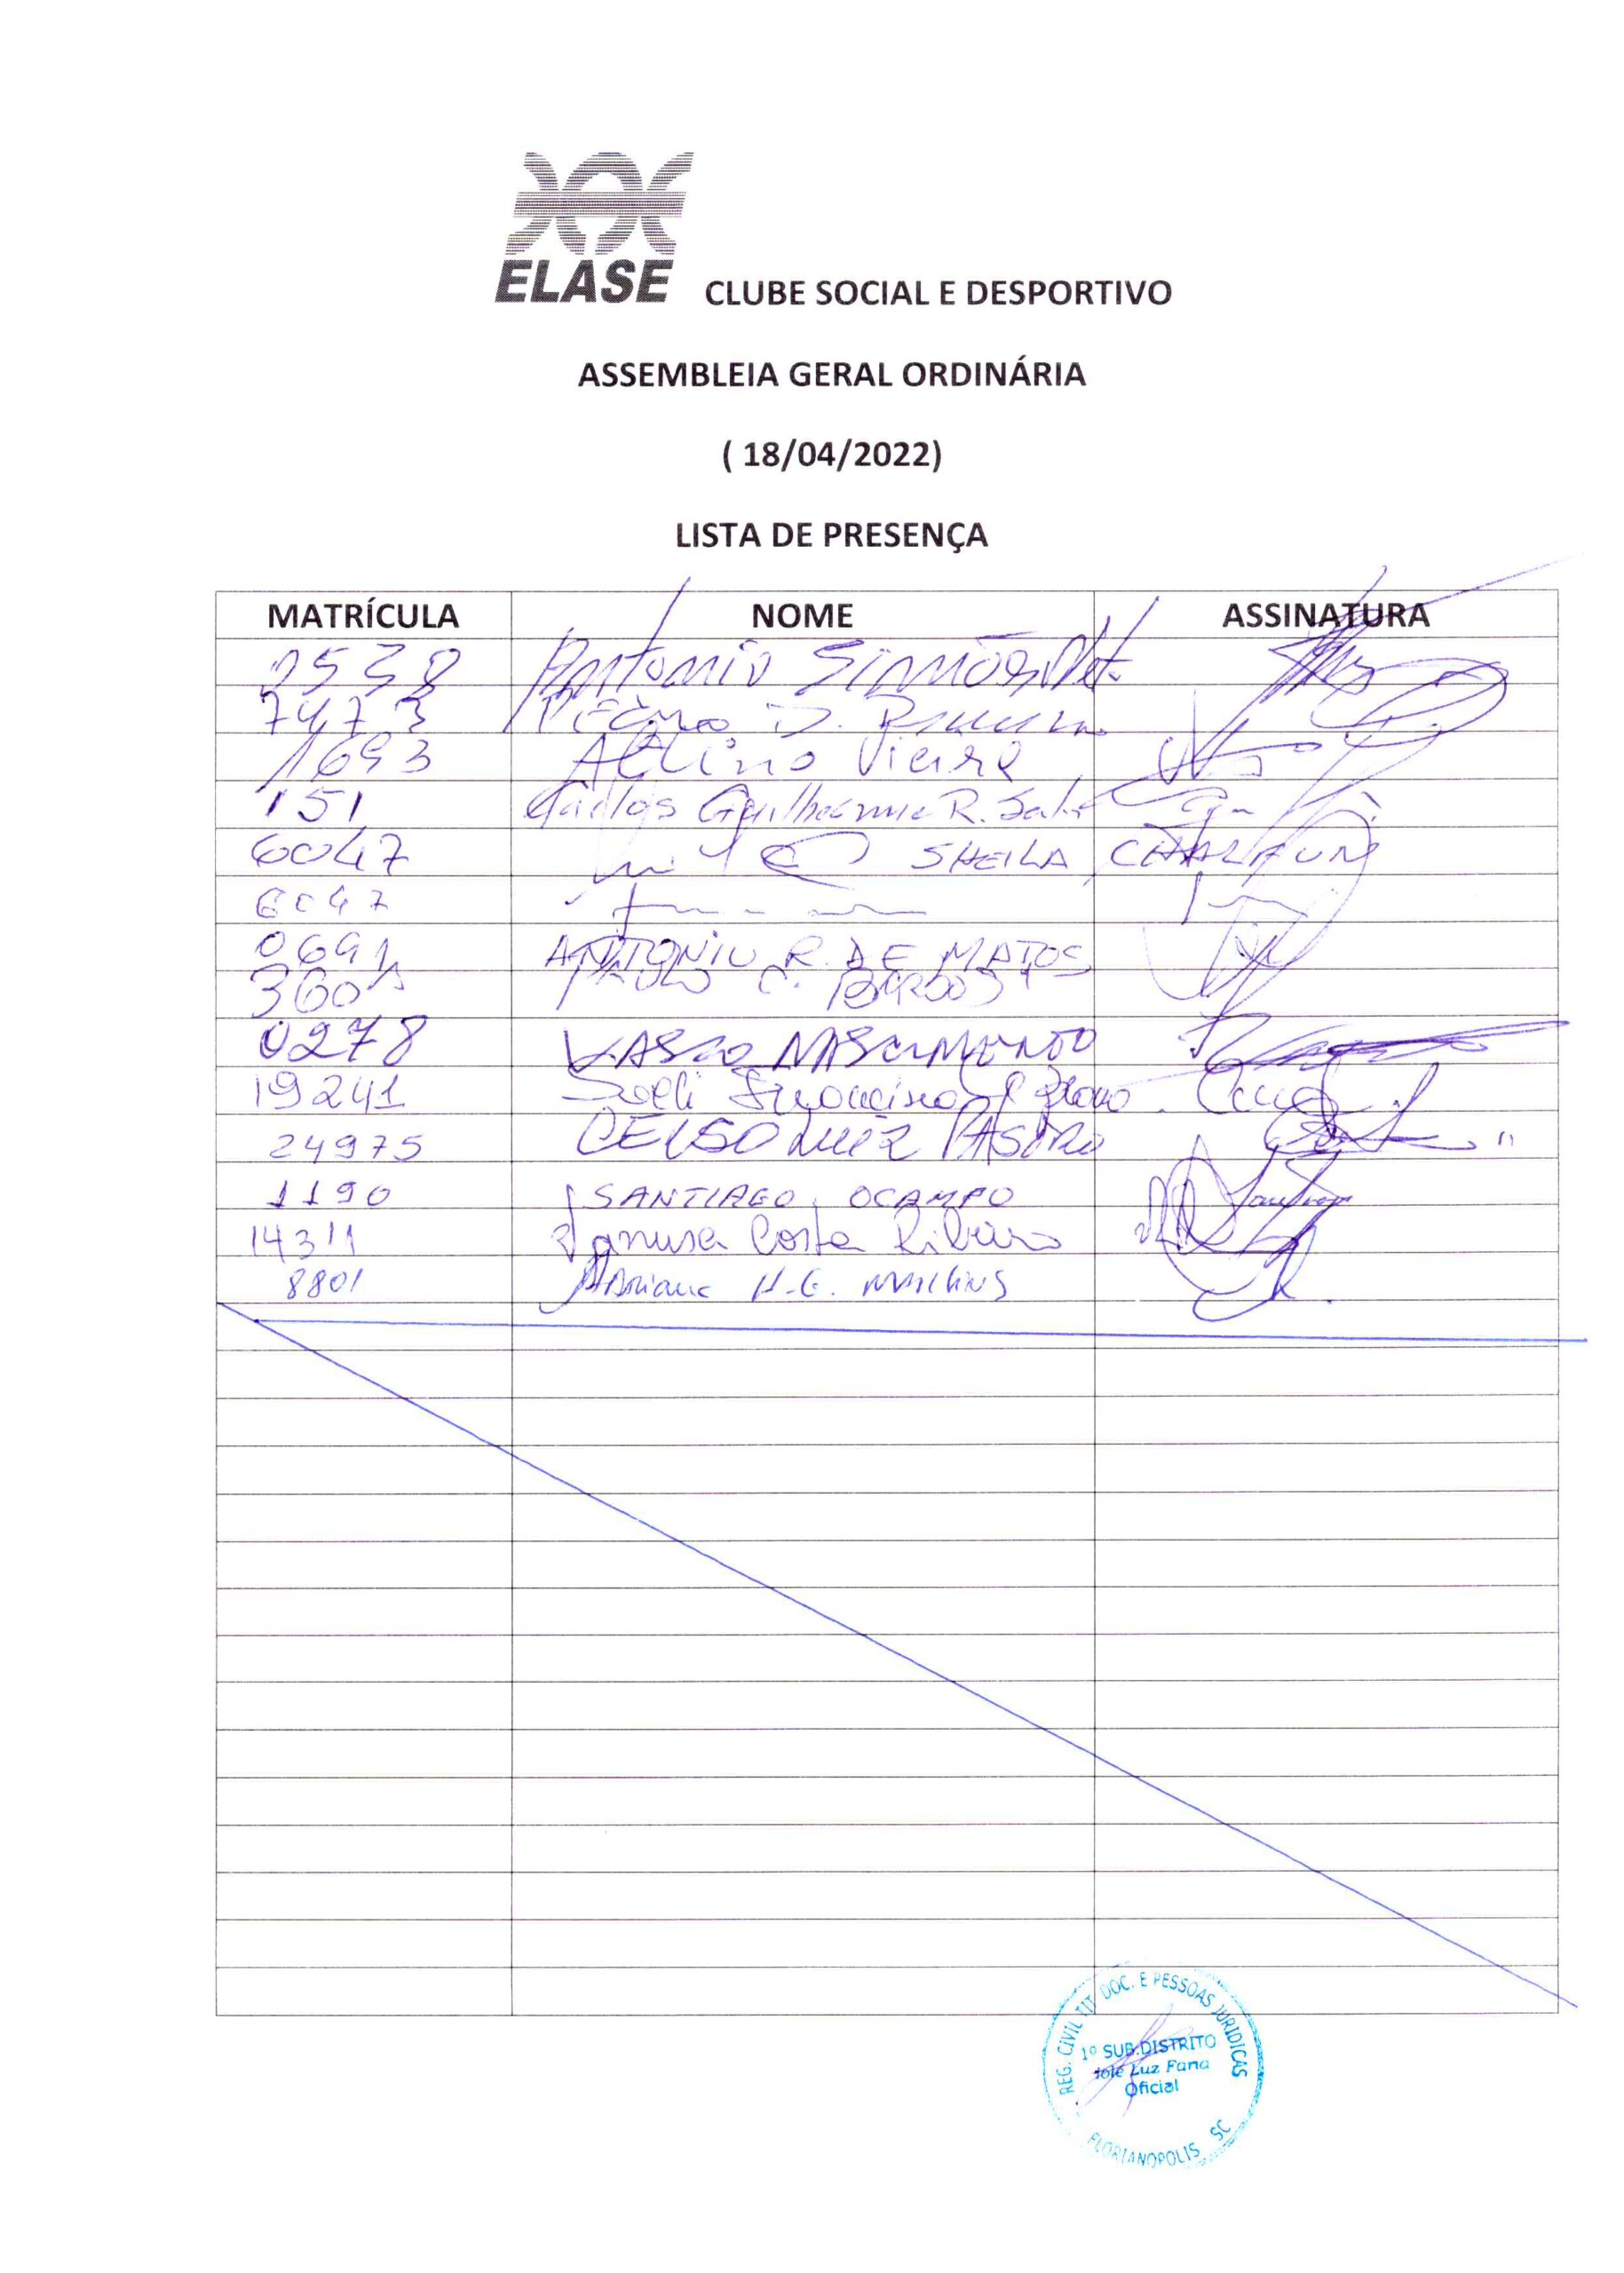 ELASE CLUBE SOCIAL E DESPORTIVO
ASSEMBLEIA GERAL ORDINÁRIA
( 18/04/2022)
LISTA DE PRESENÇA
MATRÍCULA NOME ASSINATURA
0538 Antonio Simões
7473
1693 Vieira
151 Carlos Guilherme R.
6047 SHEILA CHALFUN
6047
0691 ANTONIO R. DE MATOS
3601 PAULO C. BARBOSA
0278 VASCO NASCIMENTO
19241
24975 CELSO LUIZ PASTRO
1190 SANTIAGO OCAMPO
14311 Janusa Costa Ribeiro
8801 Adriana H.G. Martins
REG. CIVIL TIT. DOC. E PESSOAS JURIDICAS
1º SUB.DISTRITO
Luz Faria
Oficial
FLORIANOPOLIS SC